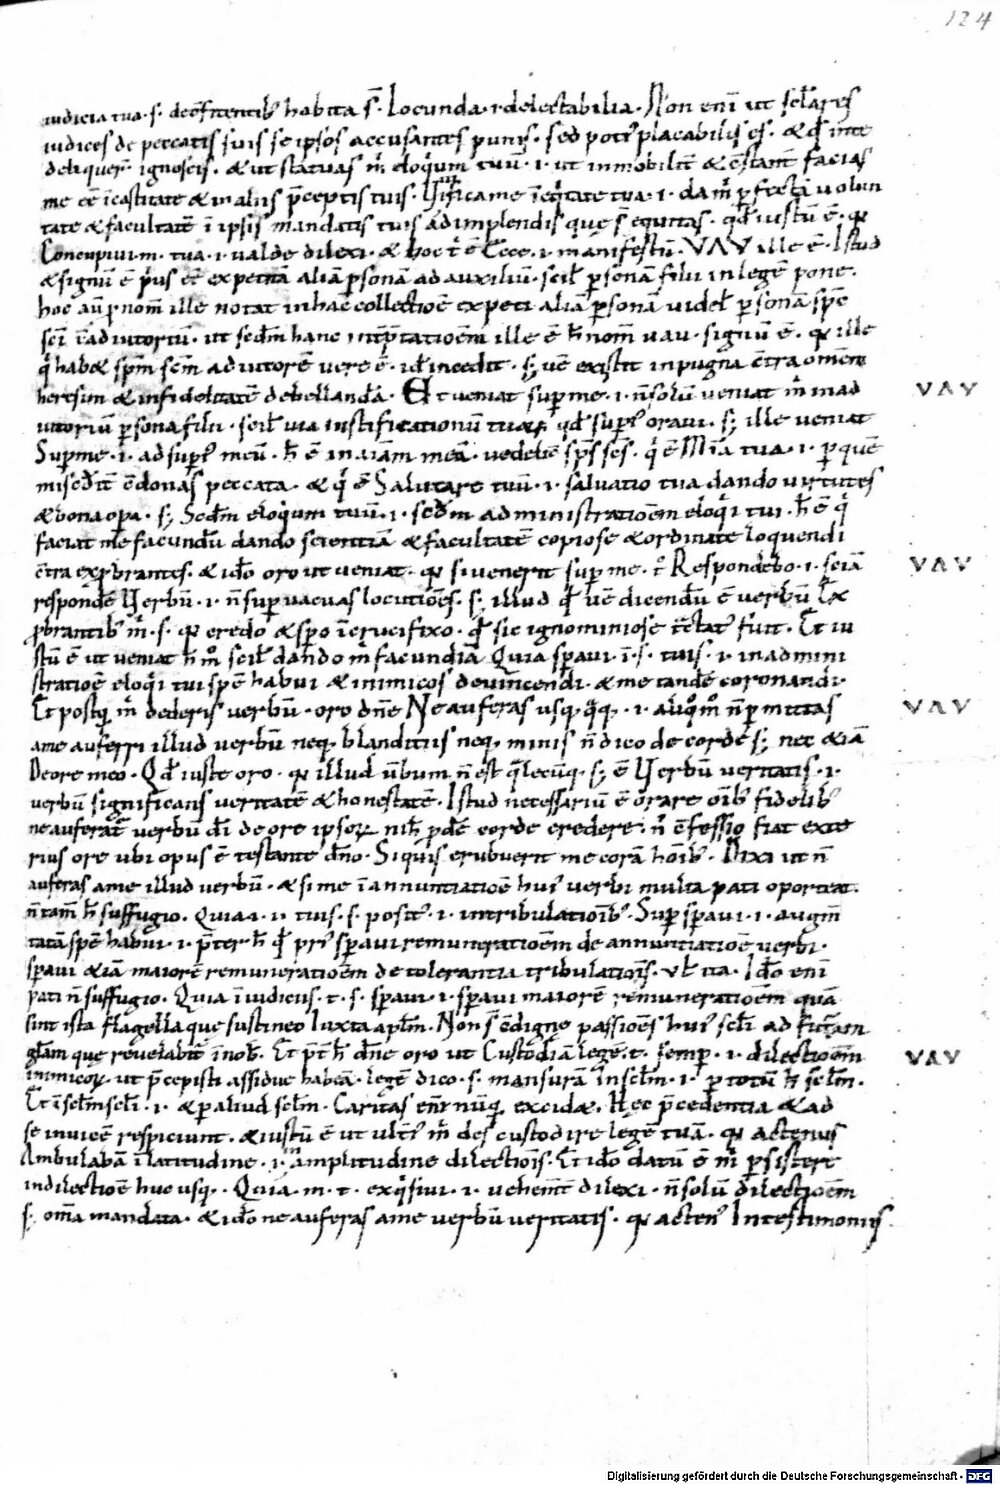 124
iudicia tua · s · de ꝯfitentib; habita s̄ · Iocunda · ⁊ delectabilia · Non eni ut sc̄lares
iudices de peccatis suis se ipsos accusantes punis · sed poti placabilis es · & qđ in te
deliquer̄ ignoscis · & ut statuas m̄ eloqium tuū · i · ut inmobilit̄ & ꝯstant̄ facias
me eē ī castitate & in aliis p̄ceptis tuis · Viuifica me ī eqitate tua · i · da m̄ ꝑfectā volun
tatē & facultatē ī ipsis mandatis tuis adimplendis que s̄ equitas · qđ iustū ē · qꝛ
Concupiui · m · tua · i · ualde dilexi · & hoc · ē Ecce · i · manifestū · VAV ille ē · Istud
& signū ē eē expetitā aliā ꝑsonā ad auxiliū · scil̄ ꝑsonā filii in legē pone ·
hoc aū ꝓnom̄ ille notat in hac collectiōe expeti aliā ꝑsonā videl̄ ꝑsonā sp̄s
sc̄i ī adiutoriū · ut scdm̄ hanc int̄p̄tatiōem ille ē h̄ nom̄ vau · signū ē · qꝛ ille
q̄ hab& sp̄m sc̄m adiutorē vere ē · incedit · s; existit in pugna ꝯtra omnem
heresim & infidelitatē debellandā · Et veniat super me · i · n̄ solū veniat m̄ in ad
iutoriū ꝑsona filii · scil̄ via iustificationū tuaꝝ qđ supi oraui · s; ille veniat
Super me · i · ad supi meū · h̄ ē in aīam meā · sp̄s sc̄s · q̄ ē Mīa tua · i · ꝑ quē
ꝯdonas peccata · & q̄ ē Salutare tuū · i · salvatio tua dando virtutes
& bona opa · s; Scdm̄ eloqium tuū · i · scdm̄ administratiōem eloqii tui · h̄ ē q̄
faciat me facundū dando scientiā & facultatē copiose & ordinate loquendi
ꝯtra exꝓbrantes · & ido oro ut veniat · qꝛ si venerit super me · Respondebo · i · sciā
respondē Verbū · i · n̄ supervacuas locutiōes · s; illud qđ dicendū ē verbū Ex
ꝓbrantib; m̄ · s · qꝛ credo & spo ī crucifixo · qđ sic ignominiose fuit · Et iu
stū ē ut veniat scil̄ dando m̄ facundiā Quia spaui · ī · s · tuis · i · in admini
stratiōe eloqii tui spē habui & inimicos devincendi · & me tandē coronandi ·
Et postq m̄ dederis verbū · oro dn̄e Ne auferas usq; · i · n̄ ꝑmittas
a me auferri illud verbū neq; blanditiis neq; minis n̄ dico de corde s; nec &iā
De ore meo · Qđ iuste oro · qꝛ illud ūbum n̄ est · s; ē Verbū veritatis · i ·
verbū significans veritatē & honestatē · Istud necessariū ē orare oīb; fidelib;
ne auferat verbū dī de ore ipsoꝝ corde credere · n̄ ꝯfessio fiat exte
rius ore ubi opus ē testante dn̄o · Siquis erubuerit me corā hoīb; · Dixi ut n̄
auferas a me illud verbū · & si me ī annuntiatiōe hui verbi multa pati oporteat ·
n̄ tam̄ h̄ suffugio · Quia · i · i · tuis · s · posit · i · in tribulatiōib; · Super spaui · i · augm̄
tatā spē habui · i · p̄ter h̄ qđ pri spaui remuneratiōem de annuntiatiōe verbi ·
spaui &iā maiorē remuneratiōem de tolerantia tribulatiōis · vl̄ ita · Ido eni
pati n̄ suffugio · Quia ī iudiciis · t · s · spaui · i · spaui maiorē remuneratiōem quā
sint ista flagella que sustineo Iuxta aplm̄ · Non s̄ ꝯdigne passiōes hui scl̄i ad futuram
gl̄am que revelabit̄ ī nob · Et p̄t h̄ dn̄e oro ut Custodiā legē · t · semp · i · dilectiōem
inimicoꝝ · ut p̄cepisti assidue habeā · legē dico · s · mansurā in sclm̄ · i · ꝑ totū h̄ sclm̄ ·
Et ī sclm̄ scl̄i · i · & ꝑ aliud sclm̄ · Caritas eni nūq; excid& · Hec p̄cedentia & ad
se inuicē respiciunt · & iustū ē ut m̄ des custodire legē tuā · qꝛ actenus
Ambulabā ī latitudine · i · in amplitudine dilectiōis · Et ido datū ē m̄ ꝑsistere
in dilectiōe huc usq; · Quia · m · t · exqisiui · i · vehemt̄ dilexi · n̄ solū dilectiōem
s; om̄a mandata · & ido ne auferas a me verbū veritatis · qꝛ acten In testimoniis
VAV
VAV
VAV
VAV
Digitalisierung gefördert durch die Deutsche Forschungsgemeinschaft - DFG